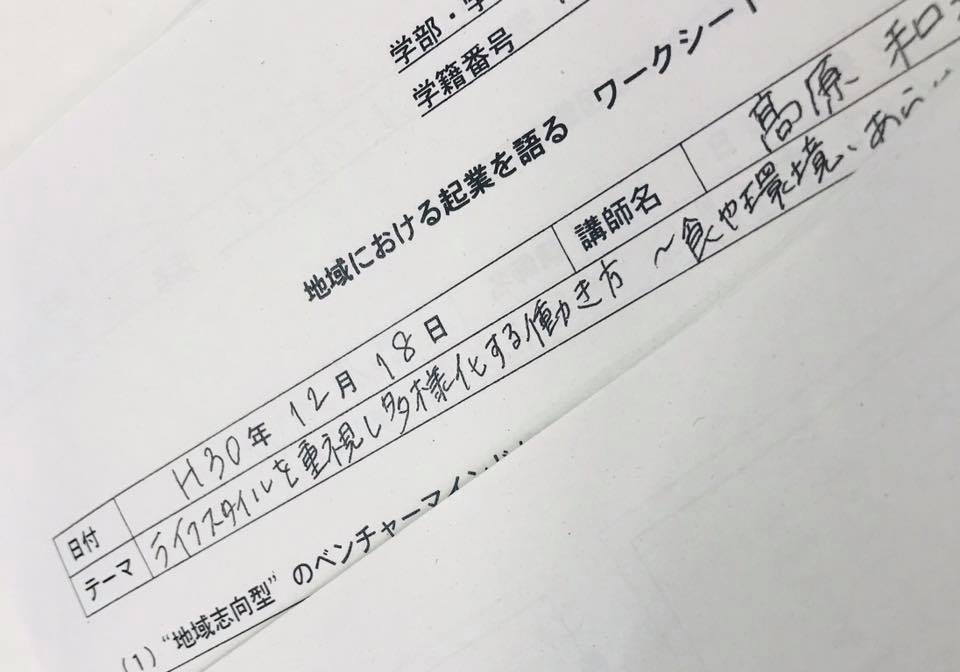 学部・学
学籍番号
地域における起業を語る ワークシート
日付 H30年 12月 18日 講師名 高原 和
テーマ ライフスタイルを重視し多様化する働き方 ~食や環境、あら
(1)“地域志向型”のベンチャーマインド